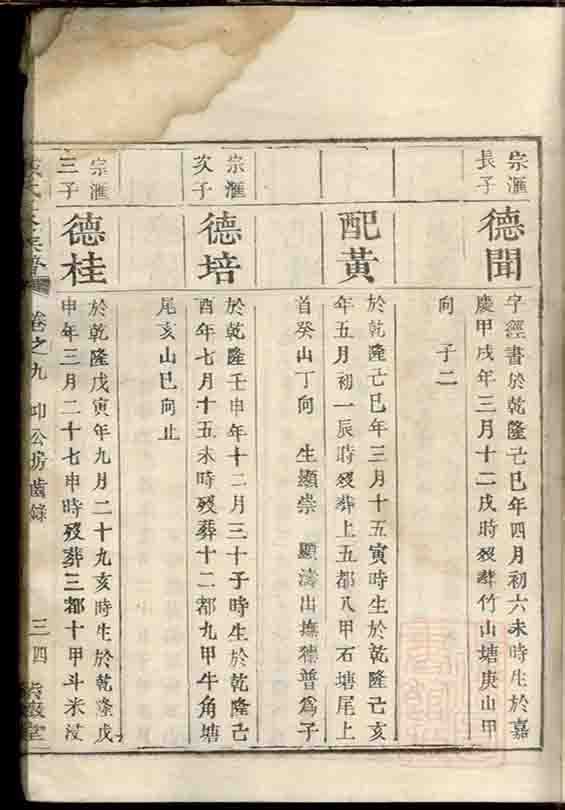 宗滙
長子
德聞
字經書於乾隆己巳年四月初六未時生於嘉
慶甲戌年三月十二戌時歿葬竹山塘庚山甲
向 子二
配黃
於乾隆己巳年三月十五寅時生於乾隆己亥
年五月初一辰時歿葬上五都八甲石塘尾上
首癸山丁向 生顯崇 顯濤出撫德普爲子
宗滙
次子
德培
於乾隆壬申年十二月三十子時生於乾隆己
酉年七月十五未時歿葬十二都九甲牛角塘
尾亥山巳向止
宗滙
三子
德桂
於乾隆戊寅年九月二十九亥時生於乾隆戊
申年三月二十七申時歿葬三都十甲斗米
卷之九 卬公房齒錄
三四
堂